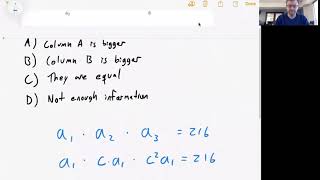 a₂ 6
A) Column A is bigger
B) Column B is bigger
C) They are equal
D) Not enough information
a₁ · a₂ · a₃ = 216
a₁ · c·a₁ · c²a₁ = 216